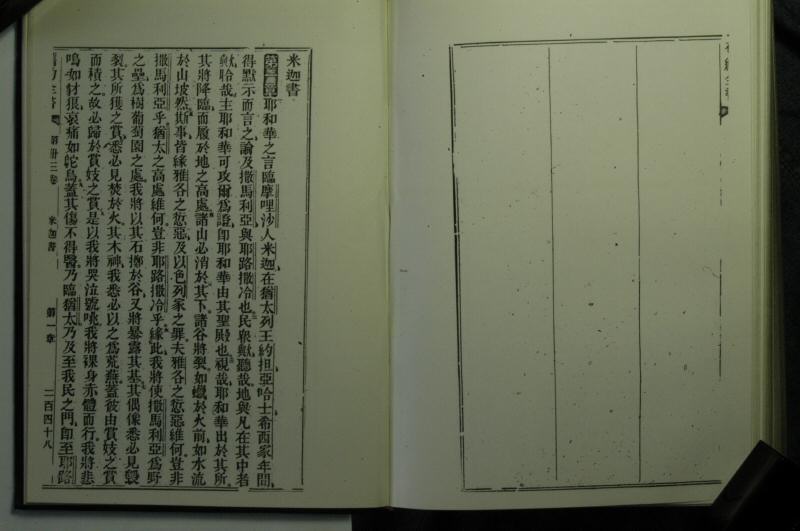 米迦書
第一章 耶和華之言臨摩哩沙人米迦在猶太列王約担亞哈士希西家年間
得默示而言之論及撒馬利亞與耶路撒冷也民衆歟聽哉地與凡在其中者
歟聆哉主耶和華可攻爾為證卽耶和華由其聖殿也視哉耶和華出於其所
其將降臨而履於地之高處諸山必消於其下諸谷將裂如蠟於火前如水流
於山坡然斯事皆緣雅各之愆惡及以色列家之罪夫雅各之愆惡維何豈非
撒馬利亞乎猶太之高處維何豈非耶路撒冷乎緣此我將使撒馬利亞為野
之壘為樹葡萄園之處我將以其石擲於谷又將暴露其基其偶像悉必見毀
裂其所獲之賞悉必見焚於火其木神我悉必以之為荒蕪蓋彼由賞妓之賞
而積之故必歸於賞妓之賞是以我將哭泣號咷我將裸身赤體而行我將悲
鳴如豺狼哀痛如鴕鳥蓋其傷不得醫乃臨猶太乃及至我民之門卽至耶路
第卅三卷 米迦書 第一章 二百四十八